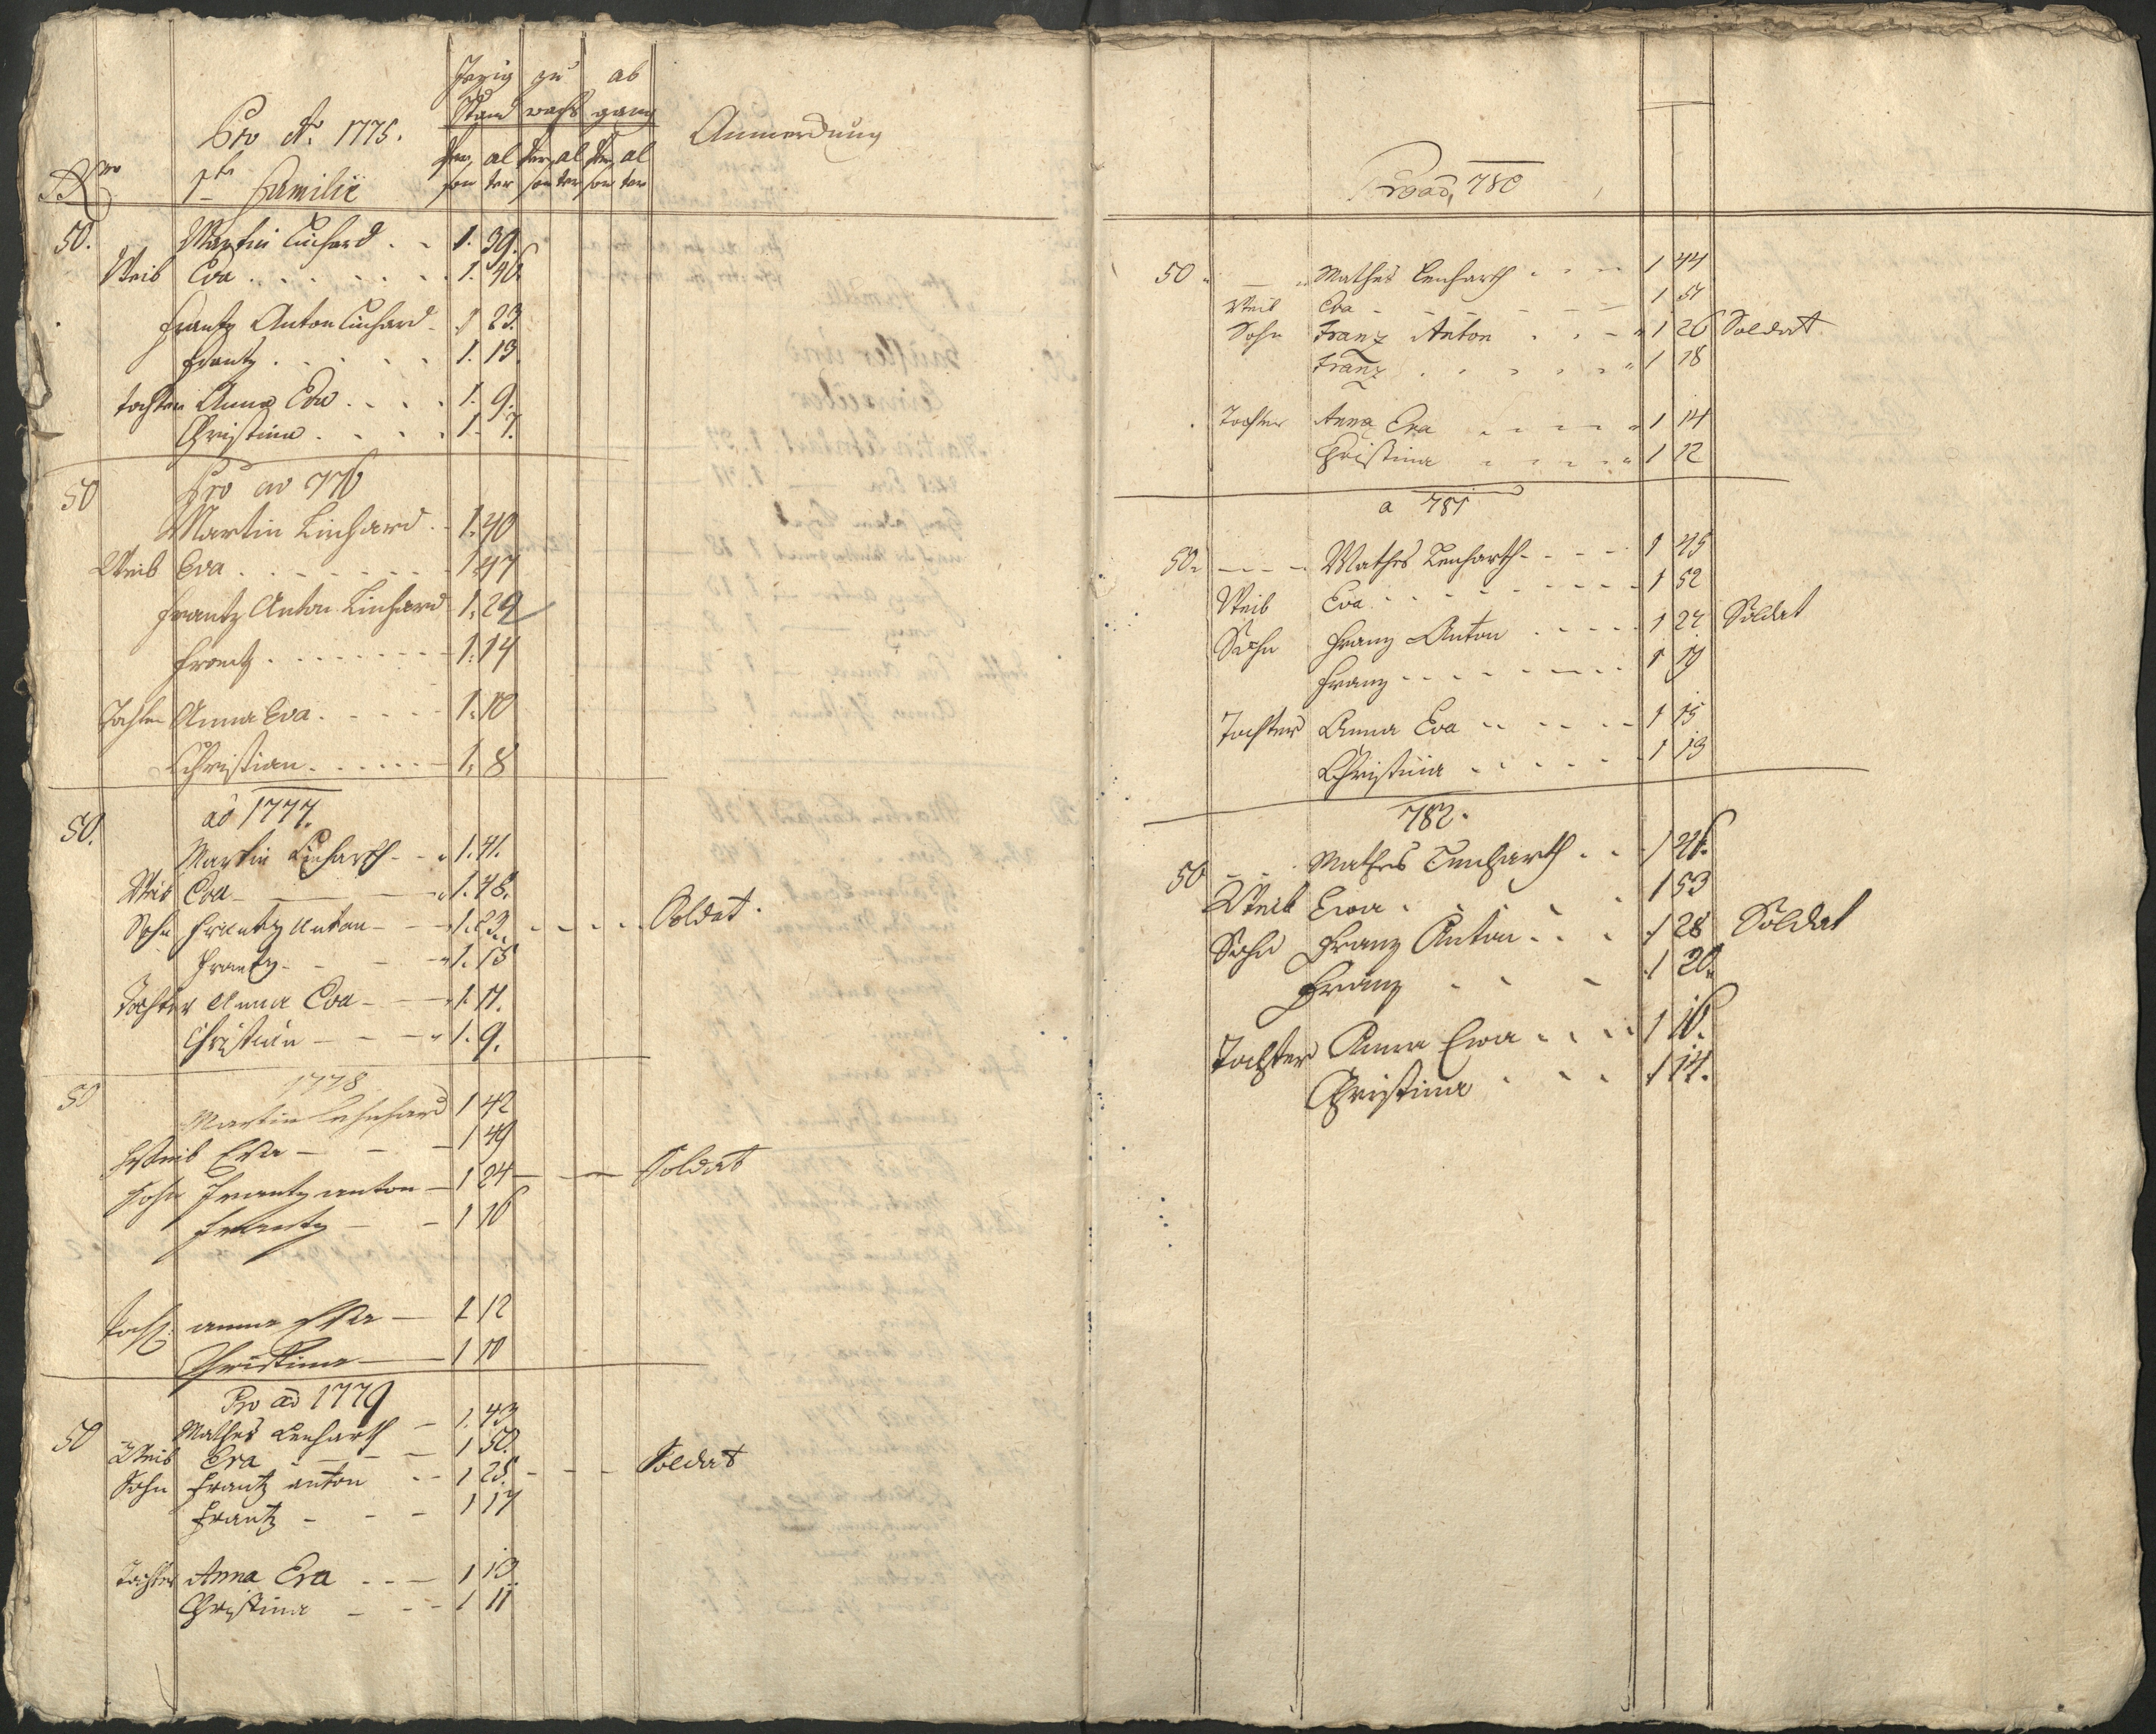 Jezig zu ab
Stand wachs gang
Pro Ao 1775. Anmerckung
Per al Per al Per al
Nro 1te Familie son ter son ter son ter
50. Martin Linhard . . 1. 39.
Weib Eva . . . . . . . 1. 46.
Frantz Anton Linhard . 1 23.
Frantz . . . . . 1. 13.
Tochter Anna Eva . . . . 1. 9.
Christina . . . . 1. 7.
50 Pro ao 776
Martin Linhard . . 1. 40
Weib Eva . . . . . . . . 1. 47
Frantz Anton Linhard 1. 24
Frantz . . . . . . . . 1. 14
Tochter Anna Eva . . . . . 1. 10
Christian . . . . . . 1. 8
ao 1777.
50. Martin Linharth - „ 1. 41.
Weib Eva - - - „ 1. 48.
Sohn Frantz Anton - - „ 1. 23. - - - - Soldat.
Frantz - - - „ 1. 15
Tochter Anna Eva - - „ 1. 11.
Christian - - - „ 1. 9.
50 1778
Martin Lehnhard 1 42
Weib Eva - - - 1 49
Sohn Frantz anton - 1 24 - - - Soldat
Frantz - - 1 16
Toch: anna Eva - 1 12
Christina - 1 10
Pro ao 1779
50 Mathes Lenharth - 1. 43
Weib Eva - - - 1 50.
Sohn Frantz anton - - 1 25. - - - Soldat
Frantz - - - 1 17
Tochter Anna Eva - - - 1 13
Christina - - - 1 11
Pro ao, 780
50 „ — „ Mathes Lenharth . . . 1 44
Weib Eva - - - - - 1 51
Sohn Franz Anton . . - „ 1 26 Soldat
Franz . . . . . „ 1 18
Tochter Anna Eva - - - - „ 1 14
Christina - - - - „ 1 12
a 781
50. - - - Mathes Lenharth - - - - 1 45
Weib Eva . - - - - - - - 1 52
Sohn Franz Anton . - - - 1 27 Soldat
Franz - - - - - - - 1 19
Tochter Anna Eva - - - - - 1 15
Christina . - - - - 1 13
782.
50 - - . Mathes Lenharth . . - 1 46.
Weib Ewa . . . . . 1 53
Sohn Franz Anton . . . 1 28 Soldat
Franz . . - 1 20.
Tochter Anna Ewa . . . 1 16.
Christina . . . 1 14.